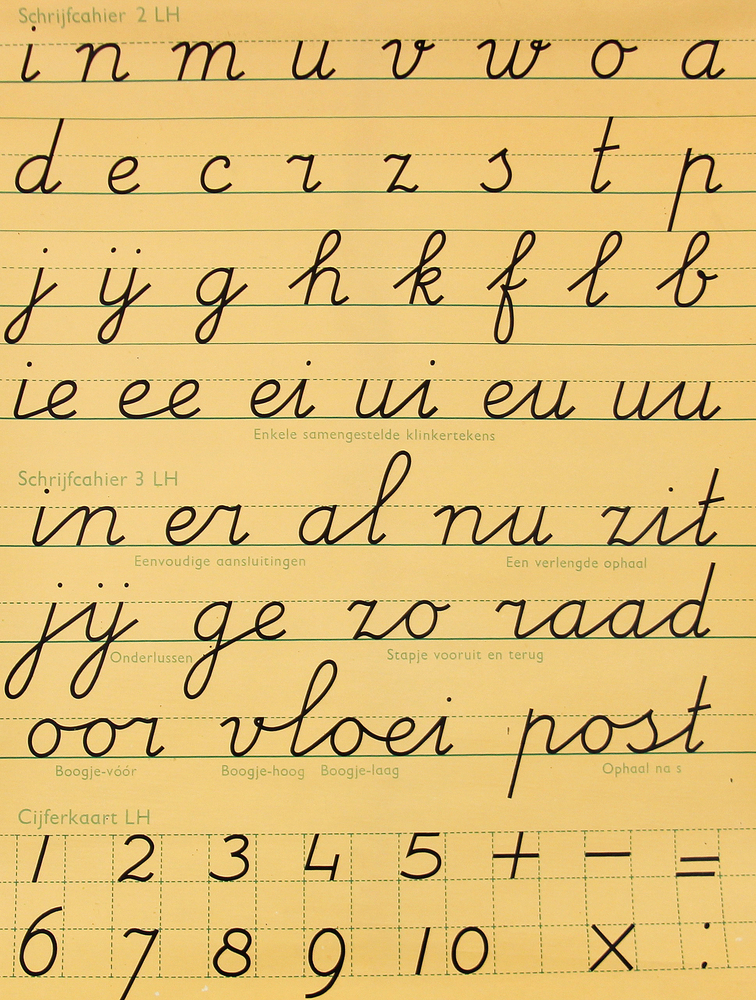 Schrijfcahier 2 LH
i n m u v w o a
d e c r z s t p
j ij g h k f l b
ie ee ei ui eu uu
Enkele samengestelde klinkertekens
Schrijfcahier 3 LH
in er al nu zit
Eenvoudige aansluitingen Een verlengde ophaal
jij ge zo raad
Onderlussen Stapje vooruit en terug
oor vloei post
Boogje-vóór Boogje-hoog Boogje-laag Ophaal na s
Cijferkaart LH
1 2 3 4 5 + − =
6 7 8 9 10 × :